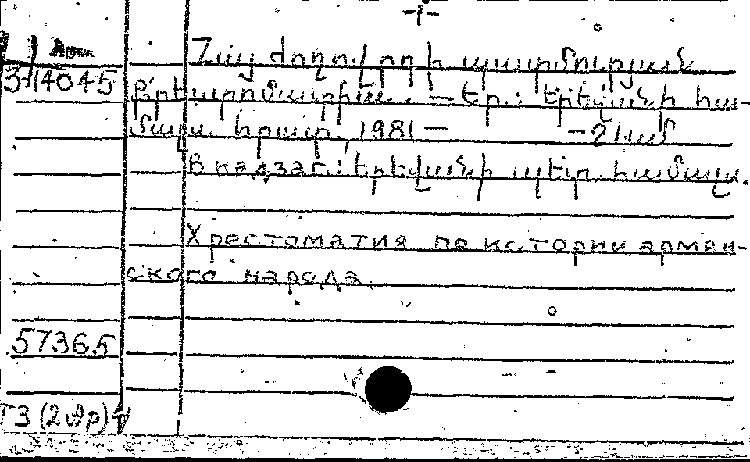 -1-
Հայ ժողովրդի պատմության
3-14045
քրեստոմատիա. — Եր.: Երևանի հա-
մալս. հրատ., 1981 — -21 սմ
В надзаг.: Երևանի պետ. համալս.
Хрестоматия по истории армян-
ского народа.
57365